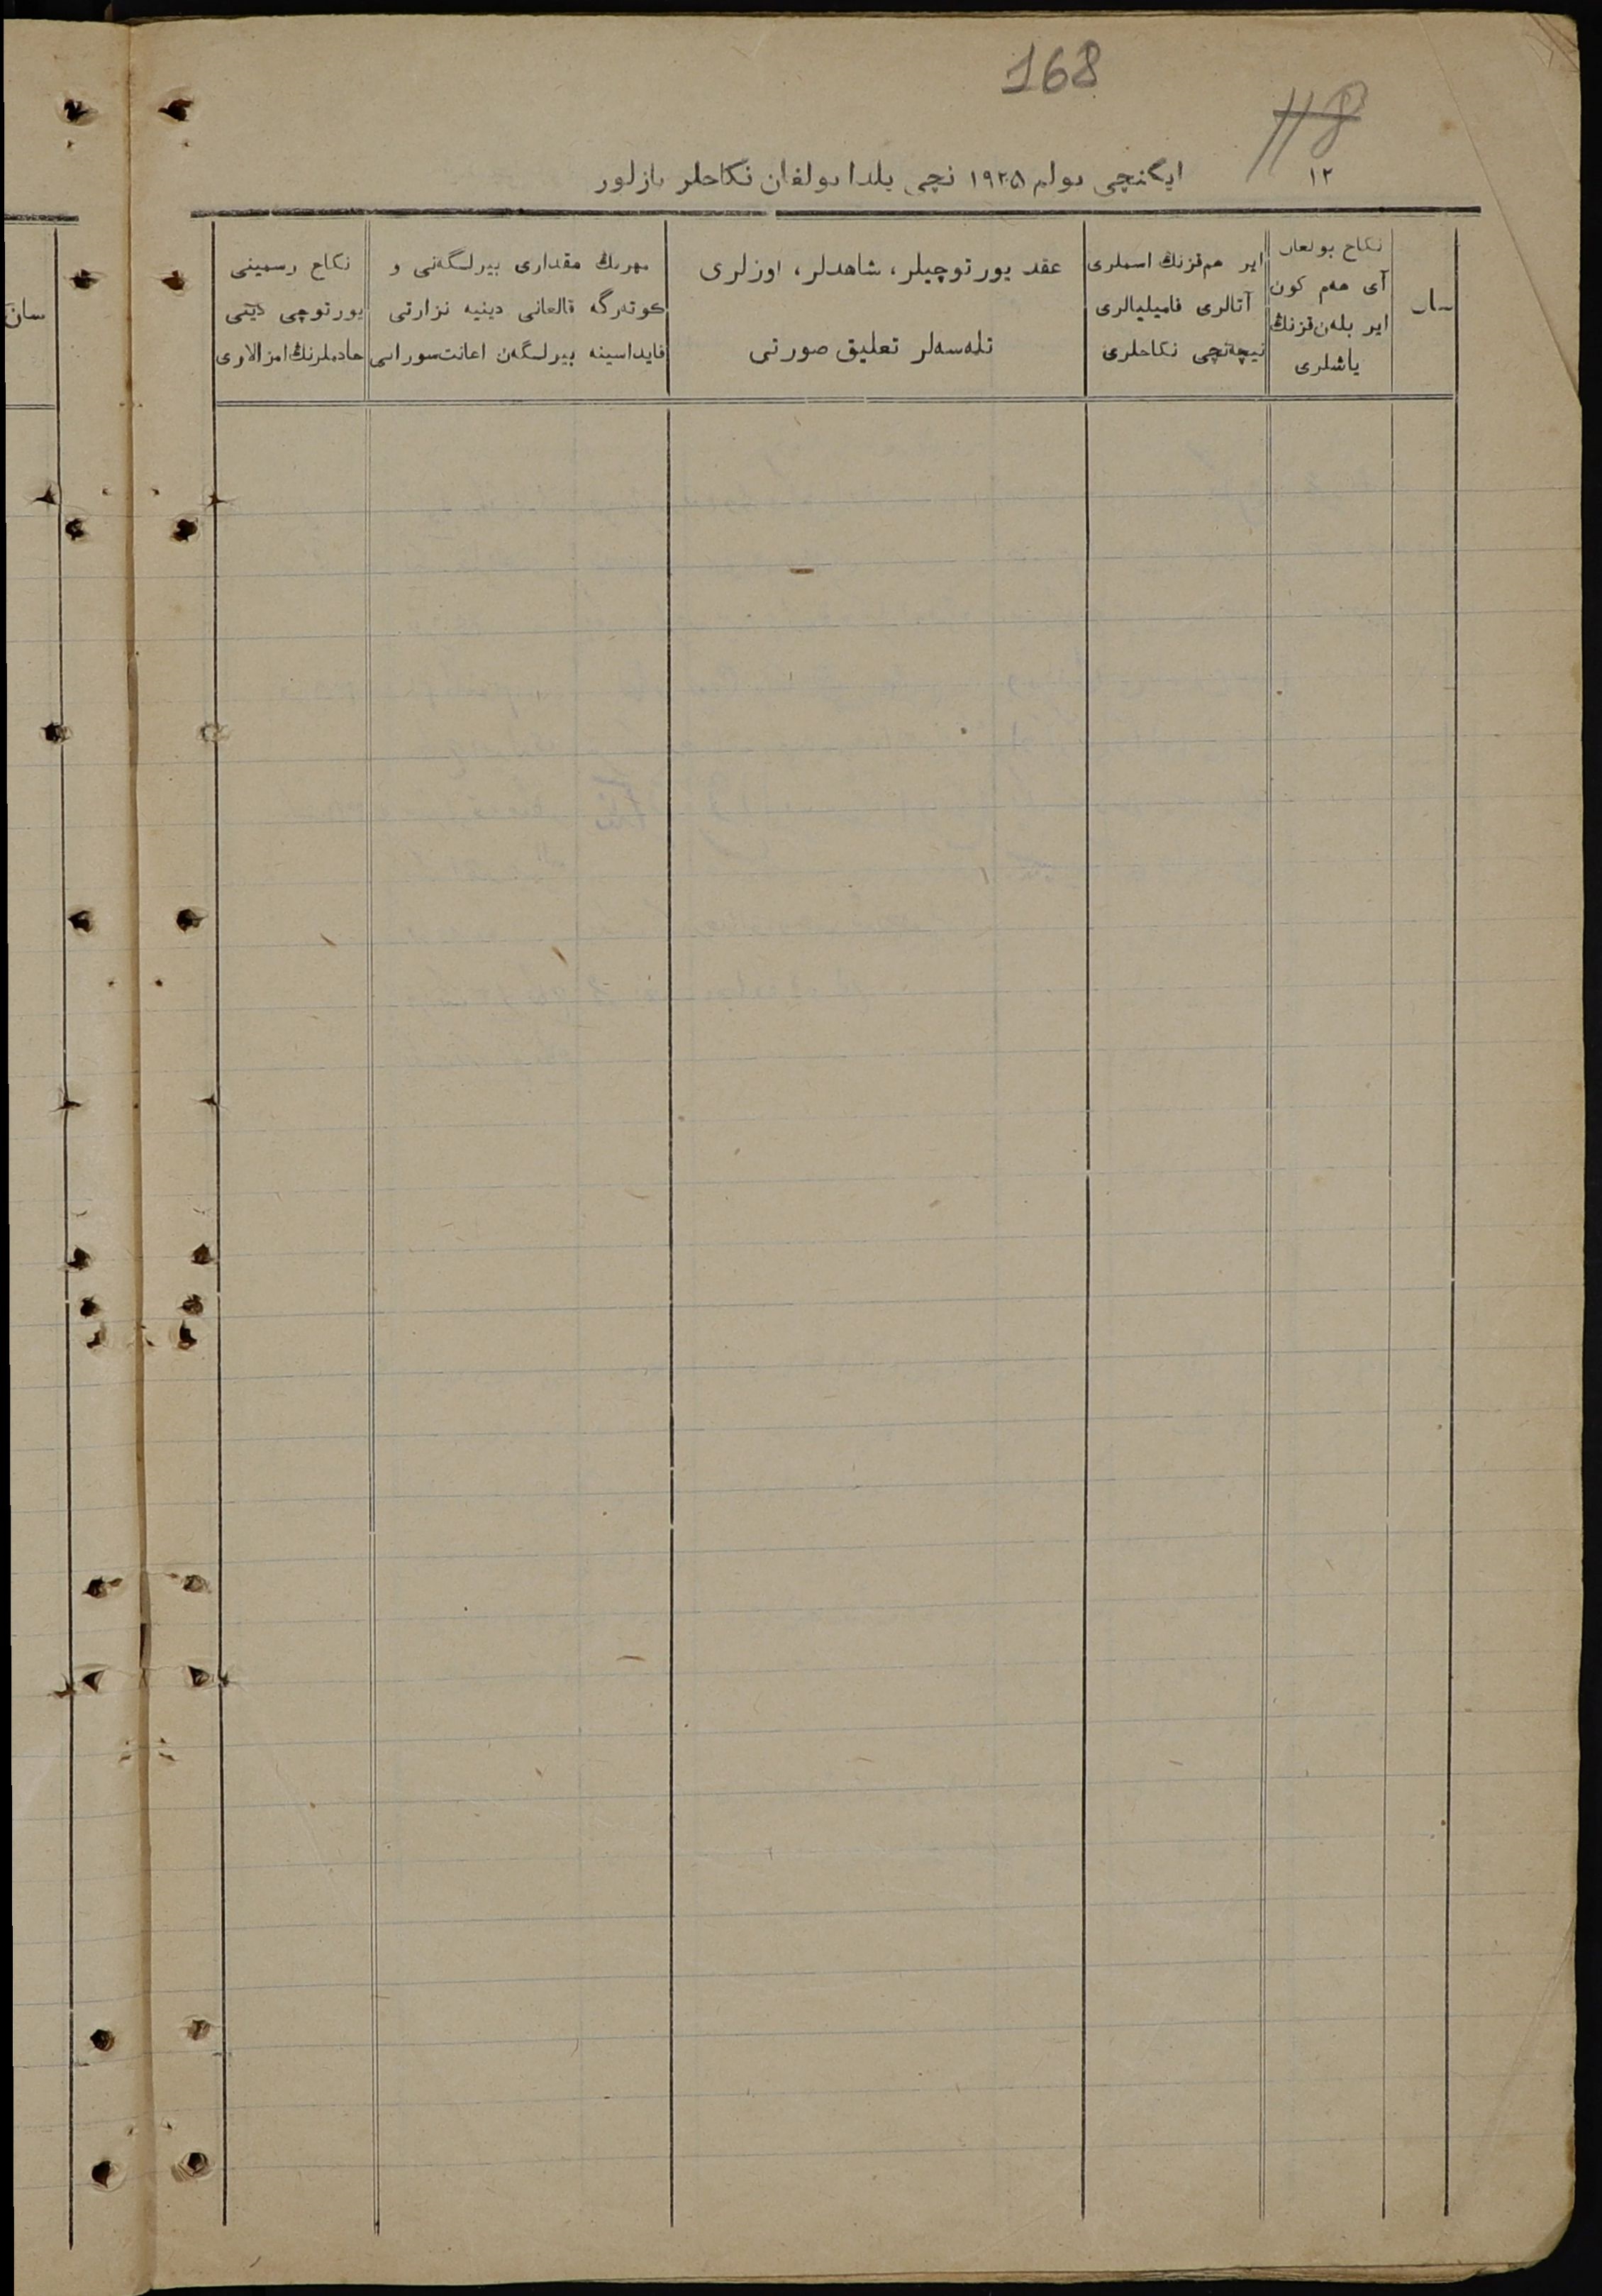 168
118
١٢
ایكنچی بولم ١٩٢٥ نچی یلدا بولغان نكاحلر یازلور
سان
نكاح بولغان
آی هەم كون
ایر بلەن قزنڭ
یاشلری
ایر هم قزنڭ اسملری
آتالری فامیلیالری
نیچەنچی نكاحلری
عقد یورتوچیلر، شاهدلر، اوزلری
تلەسەلر تعلیق صورتی
مهرنڭ مقداری بیرلگەنی و
كوتەرگە قالغانی دینیە نزارتی
فایداسینە بیرلگەن اعانت سوراسی
نكاح رسمینی
یورتوچی دینی
خادملرنڭ امزالاری
سان